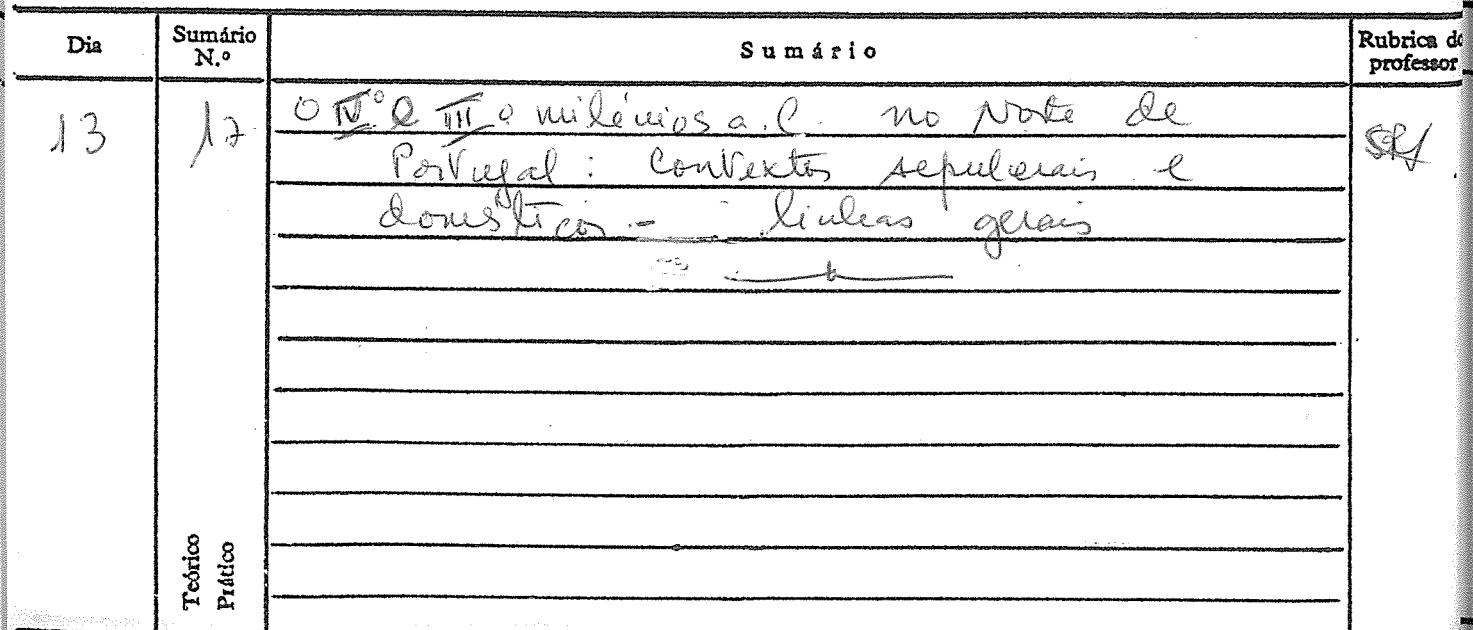 Dia
Sumário
N.º
Sumário
Rubrica do
professor
13
17
O IVº e IIIº milénios a.C. no Norte de
Portugal : Contextos sepulcrais e
domésticos - linhas gerais
Teórico
Prático